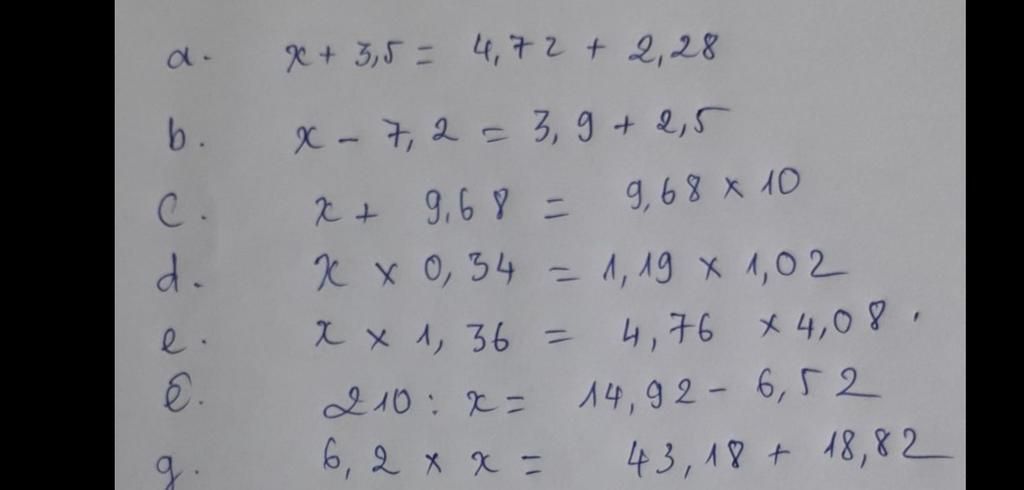 a. x + 3,5 = 4,72 + 2,28
b. x - 7,2 = 3,9 + 2,5
c. x + 9,68 = 9,68 x 10
d. x x 0,34 = 1,19 x 1,02
e. x x 1,36 = 4,76 x 4,08.
ê. 210 : x = 14,92 - 6,52
g. 6,2 x x = 43,18 + 18,82